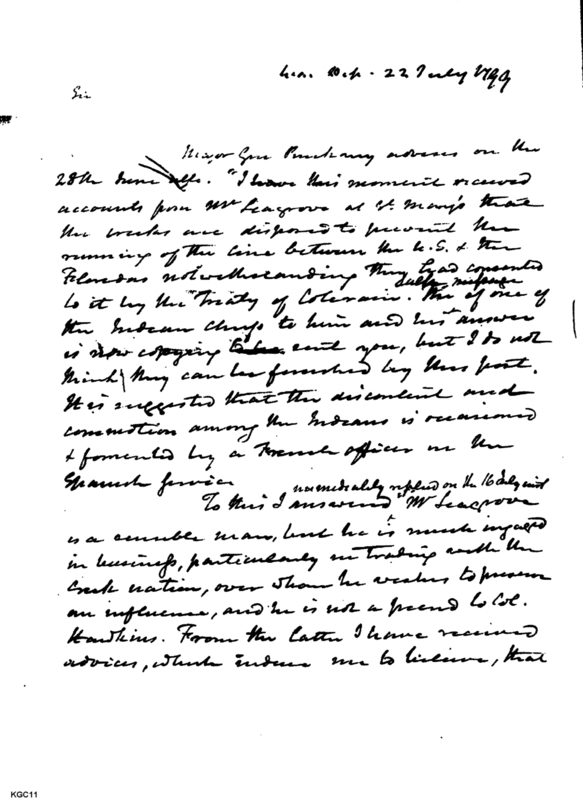 War. Dep. 22 July 1799
Sir
Major Gen Pinckney advises on the
28th June. "I have this moment received
accounts from Mr. Seagrove at St. Mary's that
the creeks are disposed to prevent the
running of the line between the U.S. & the
Floridas notwithstanding they had consented
to it by the Treaty of Colerain. The talk or message of one of
the Indian chiefs to him and his answer
is now copying sent you, but I do not
think they can be furnished by this post.
It is suggested that the discontent and
commotion among the Indians is occasioned
& fomented by a French officer in the
Spanish service
immediately replied on the 16 July inst
To this I answered Mr Seagrove
is a sensible man, but he is much engaged
in business, particularly in trading with the
Creek nation, over whom he wishes to preserve
an influence, and he is not a friend to Col.
Hawkins. From the latter I have received
advices, which induce me to believe, that
KGC11